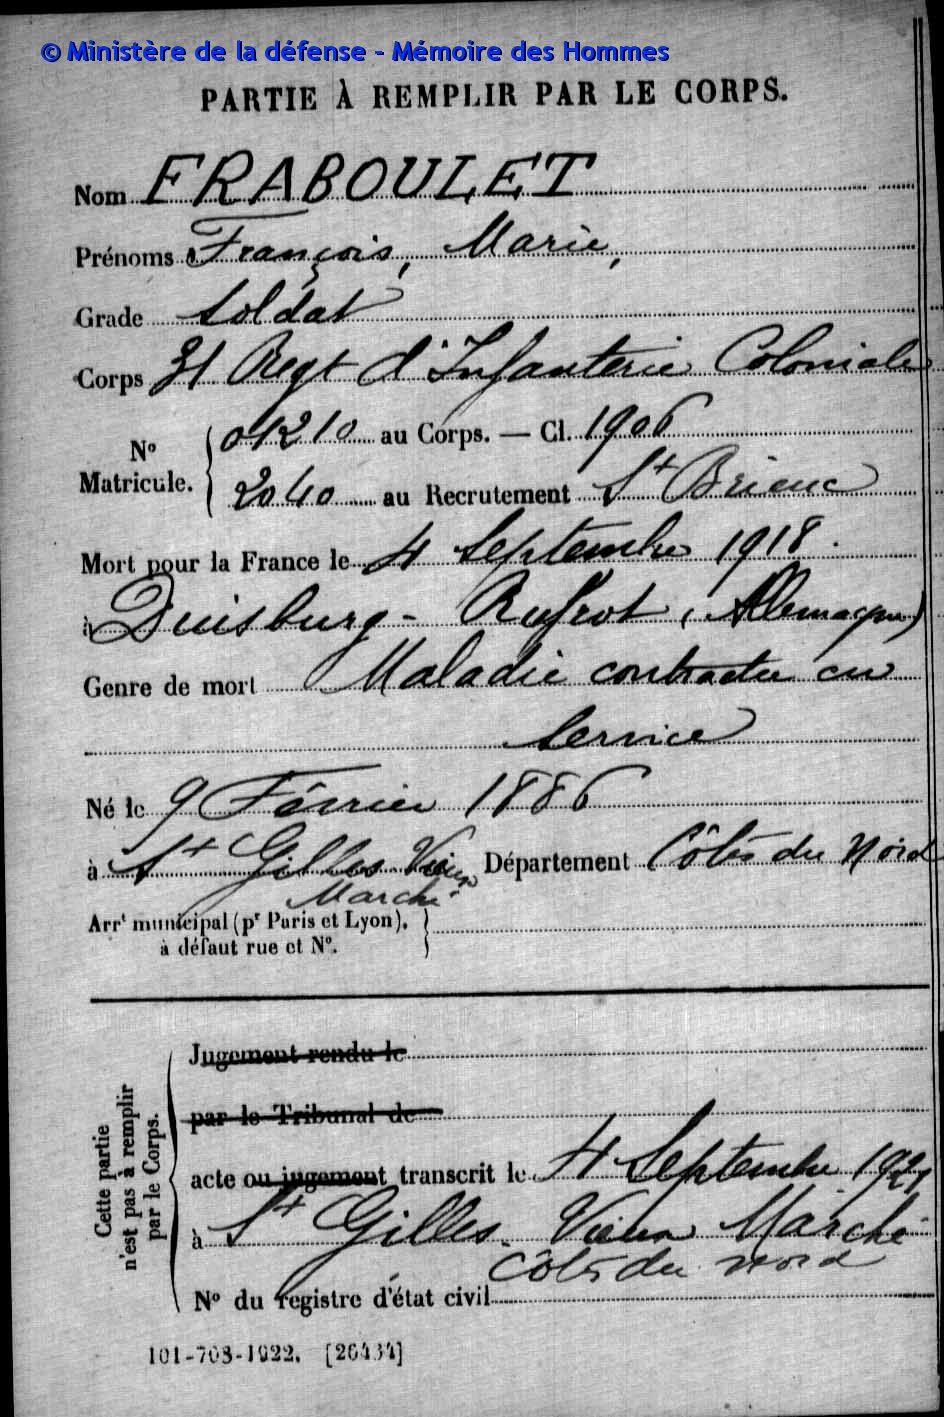 © Ministère de la défense - Mémoire des Hommes
PARTIE À REMPLIR PAR LE CORPS.
Nom FRABOULET
Prénoms François, Marie,
Grade Soldat
Corps 31 Regt d'Infanterie Coloniale
No Matricule. 01210 au Corps. — Cl. 1906
2040 au Recrutement St Brieuc
Mort pour la France le 4 Septembre 1918.
à Duisburg - (Allemagne)
Genre de mort Maladie contractée en
Service
Né le 9 Février 1886
à St Gilles Vieux Département Côtes du Nord
Marché
Arrt municipal (pr Paris et Lyon),
à défaut rue et No.
Cette partie
n'est pas à remplir
par le Corps.
Jugement rendu le
par le Tribunal de
acte ou jugement transcrit le 4 Septembre 1921
à St Gilles - Vieux Marché
Côtes du Nord
No du registre d'état civil
101-708-1922. [26434]